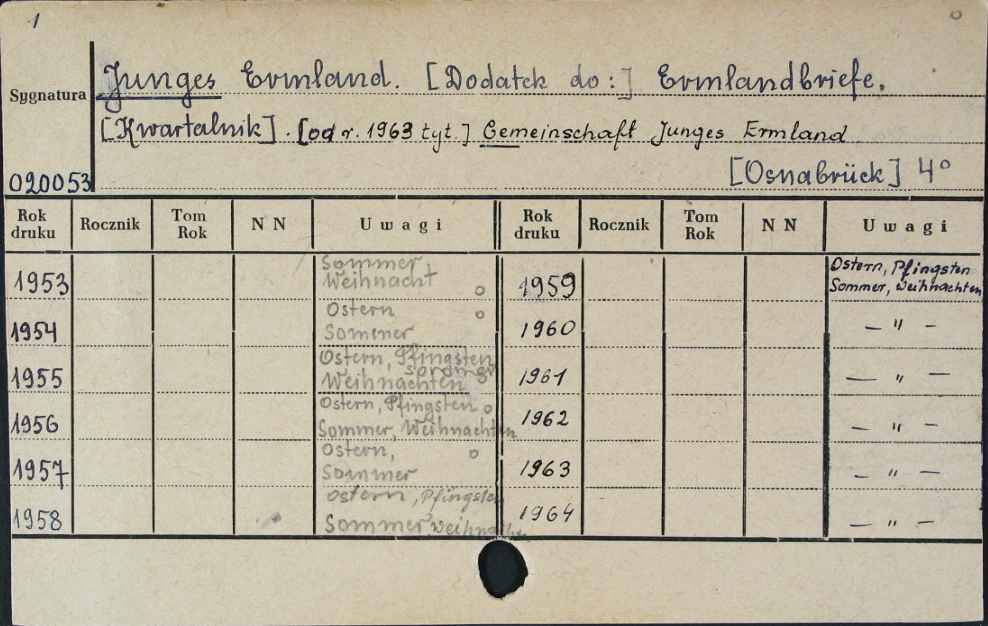 1
Junges Ermland. [Dodatek do:] Ermlandbriefe.
Sygnatura
[Kwartalnik]. [od r. 1963 tyt.] Gemeinschaft Junges Ermland
020053
[Osnabrück] 4°
Rok druku Rocznik Tom Rok NN Uwagi Rok druku Rocznik Tom Rok NN Uwagi
1953 Sommer, Weihnacht 1959 Ostern, Pfingsten Sommer, Weihnachten
1954 Ostern Sommer 1960 — " —
1955 Ostern, Pfingsten Sommer Weihnachten 1961 — " —
1956 Ostern, Pfingsten Sommer, Weihnachten 1962 — " —
1957 Ostern, Sommer 1963 — " —
1958 Ostern, Pfingsten Sommer, Weihnachten 1964 — " —